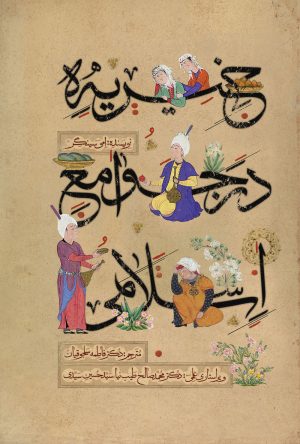 خیریه
نویسنده: امی سینگر
در جوامع
اسلامی
مترجم: دکتر فاطمه
ویراستاری علمی: دکتر محمد صالح طیب نیا سید حسین